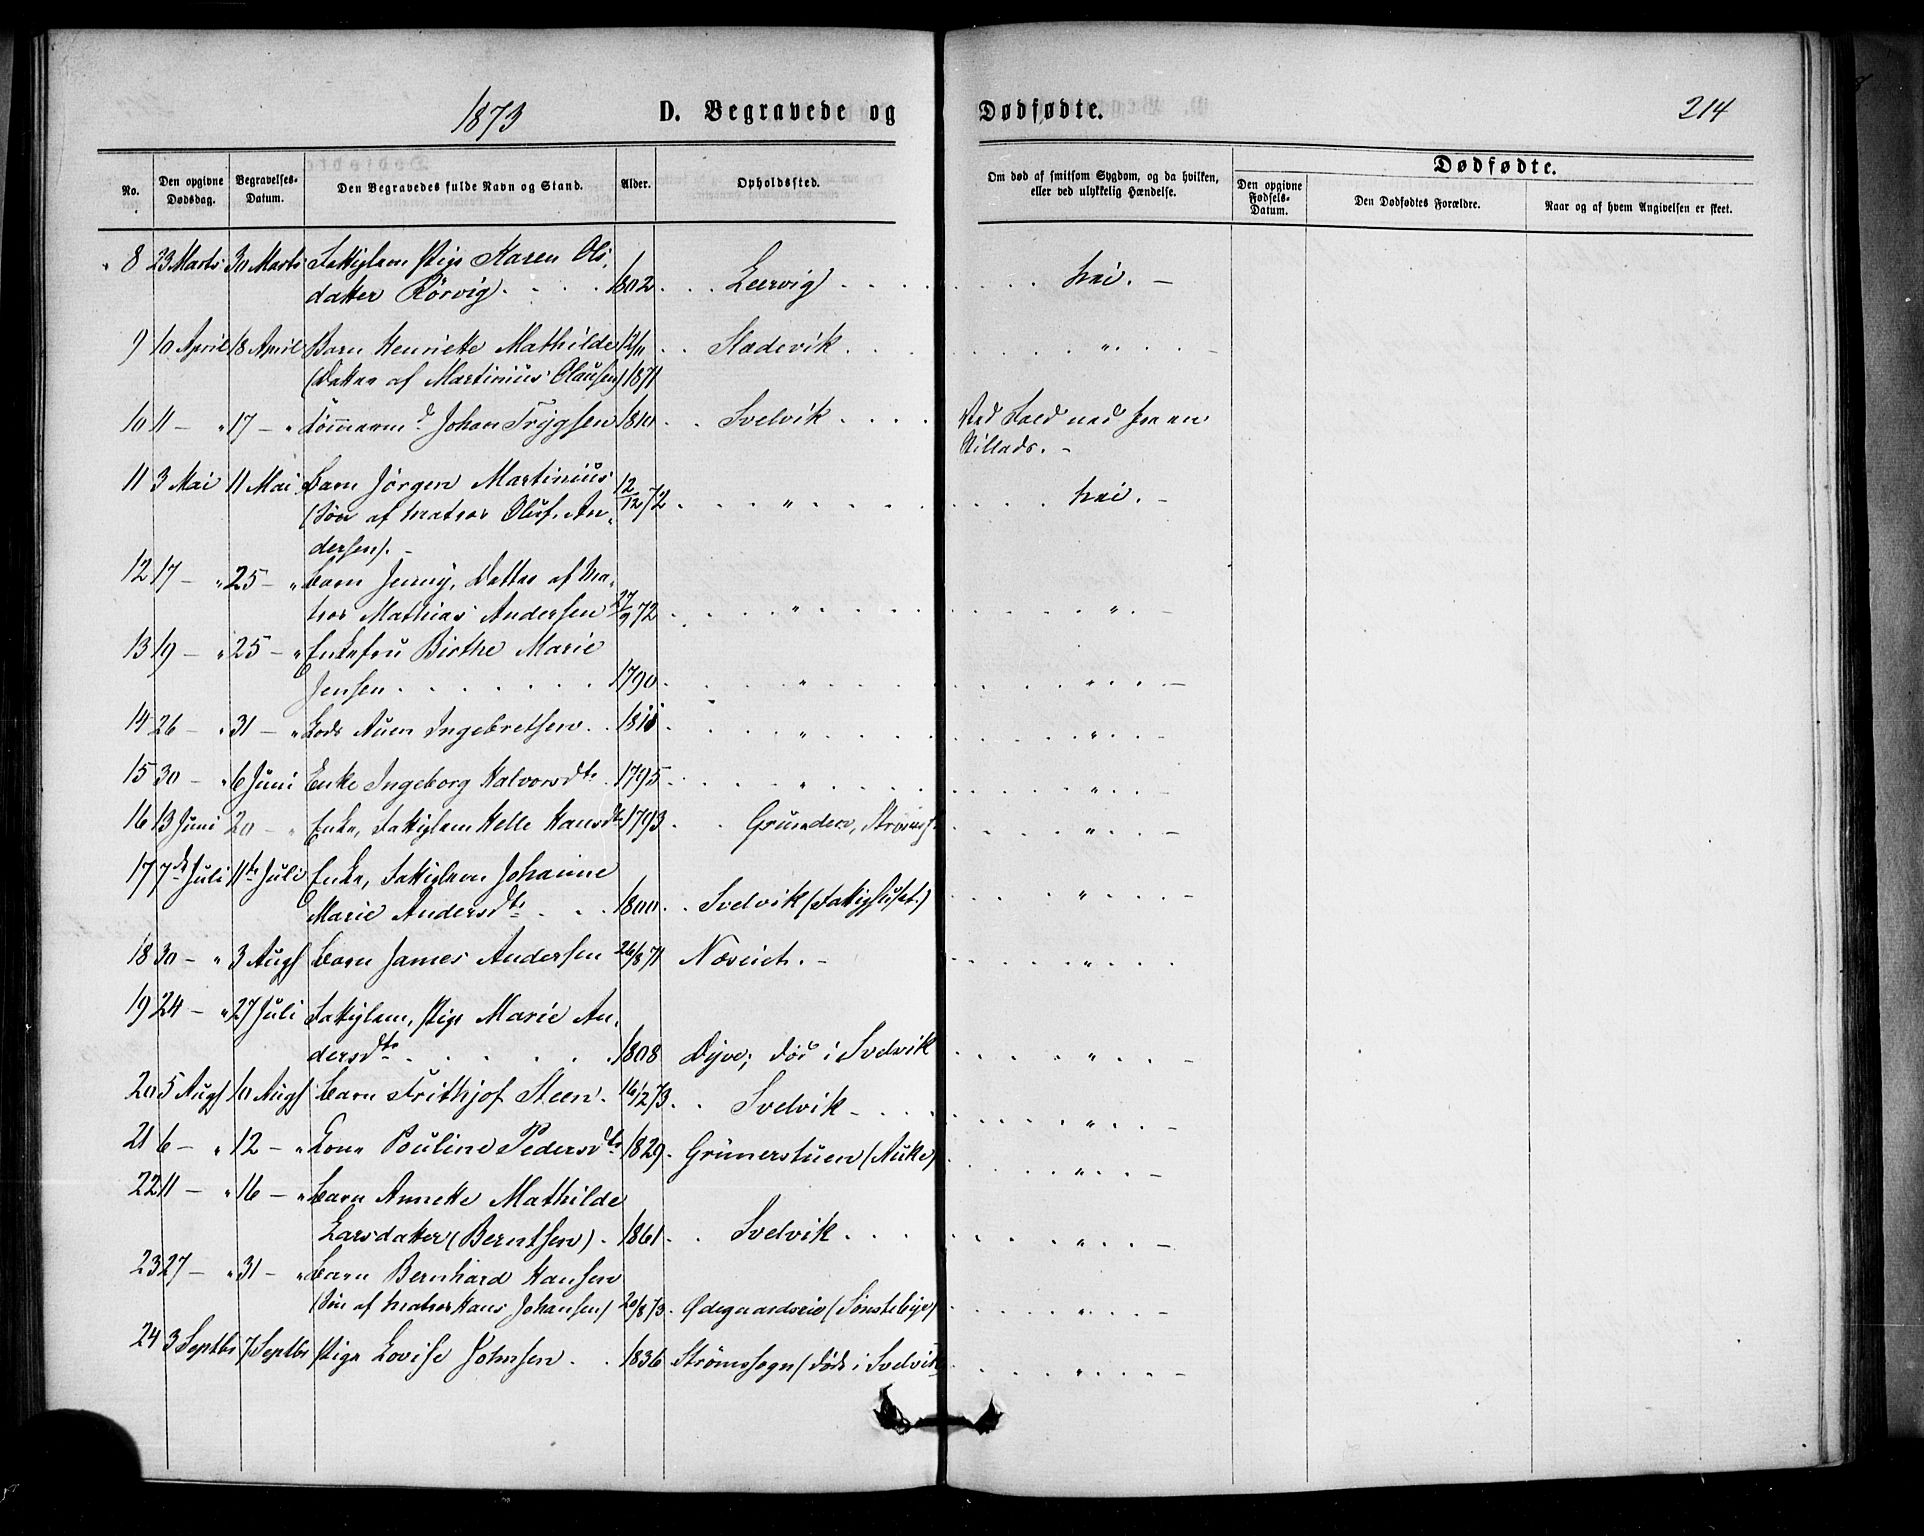 1873 D. Begravede og Dødfødte. 214
No. Den opgivne Dødsdag. Begravelses-Datum. Den Begravedes fulde Navn og Stand. Alder. Opholdssted. Om død af smitsom Sygdom, og da hvilken, eller ved ulykkelig Hændelse. Dødfødte. Den opgivne Fødsels-Datum. Den Dødfødtes Forældre. Naar og af hvem Angivelsen er skeet.
8 23 Marts 30 Marts Fattiglem Pige Karen Ols-
datter Rörvig . . . . 1802 . . . Leervig . . . . nei. –
9 10 April 18 April Barn Henriette Mathilde 12/11 . . Stadevik . . . . " . . . –
(Datter af Martinius Olausen) 1871
10 11 – " 17 – " Tömmerm.d Johan Trygsen 1810 . . Svelvik . . . . Ved Fald ned fra en
Stillads. –
11 3 Mai 11 Mai Barn Jörgen Martinius 12/12 72 . . " . . . . nei. –
(Sön af Matros Oluf An-
dersen). –
12 17 – " 25 – " Barn Jenny, Datter af Ma-
tros Mathias Andersen 27/9 72 . . . " . . . . " . –
13 19 – " 25 – " Enkefru Birthe Marie
Jensen . . . . . . . 1790 . . . " . . . . " . . . –
14 26 – " 31 – " Lods Auen Ingebretsen . . 1811 . . . " . . . . " . . –
15 30 – " 6 Juni Enke Ingeborg Halvorsdtr. . 1795 . . . " . . . . " . . –
16 13 Juni 20 – " Enke, Fattiglem Helle Hansdtr. 1793 . . Grunden, Strömsg. . . . " . . –
17 7de Juli 11te Juli Enke, Fattiglem Johanne
Marie Andersdtr. . . . 1800 . . Svelvik (Fattighuset.) . . . " . . . –
18 30 – " 3 Augs Barn James Andersen 26/8 71 Nesset. – . . . " . . .
19 24 – " 27 Juli Fattiglem, Pige Marie An-
dersdtr. . . . . . . 1808 Dyve; död i Svelvik . . . . " . . . –
20 5 Augs 10 Augs Barn Frithjof Steen . 16/12 73 . . Svelvik . . . . " . . –
21 6 – " 12 – " Kone Pouline Pedersdtr. 1829 . Grünerstuen (Auke) . . . . " . . –
22 11 – " 16 – " Barn Annette Mathilde
Larsdatter (Berntsen) . 1861 . . Svelvik . . . . " . . –
23 27 – " 31 – " Barn Bernhard Hansen
(Sön af Matros Hans Johansen) 20/8 73 . Ödegaardseie (Sönstebye) . . . . " . . –
24 3 Septbr 7 Septbr Pige Lovise Johnsen . . 1836 Strömssogn (död i Svelvik . . . . " . . . –